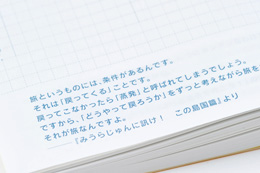 旅というものには、条件があるんです。
それは「戻ってくる」ことです。
戻ってこなかったら「蒸発」と呼ばれてしまうでしょう。
ですから、「どうやって戻ろうか」をずっと考えながら旅を
それが旅なんですよ。
『みうらじゅんに訊け！ この島国篇』より